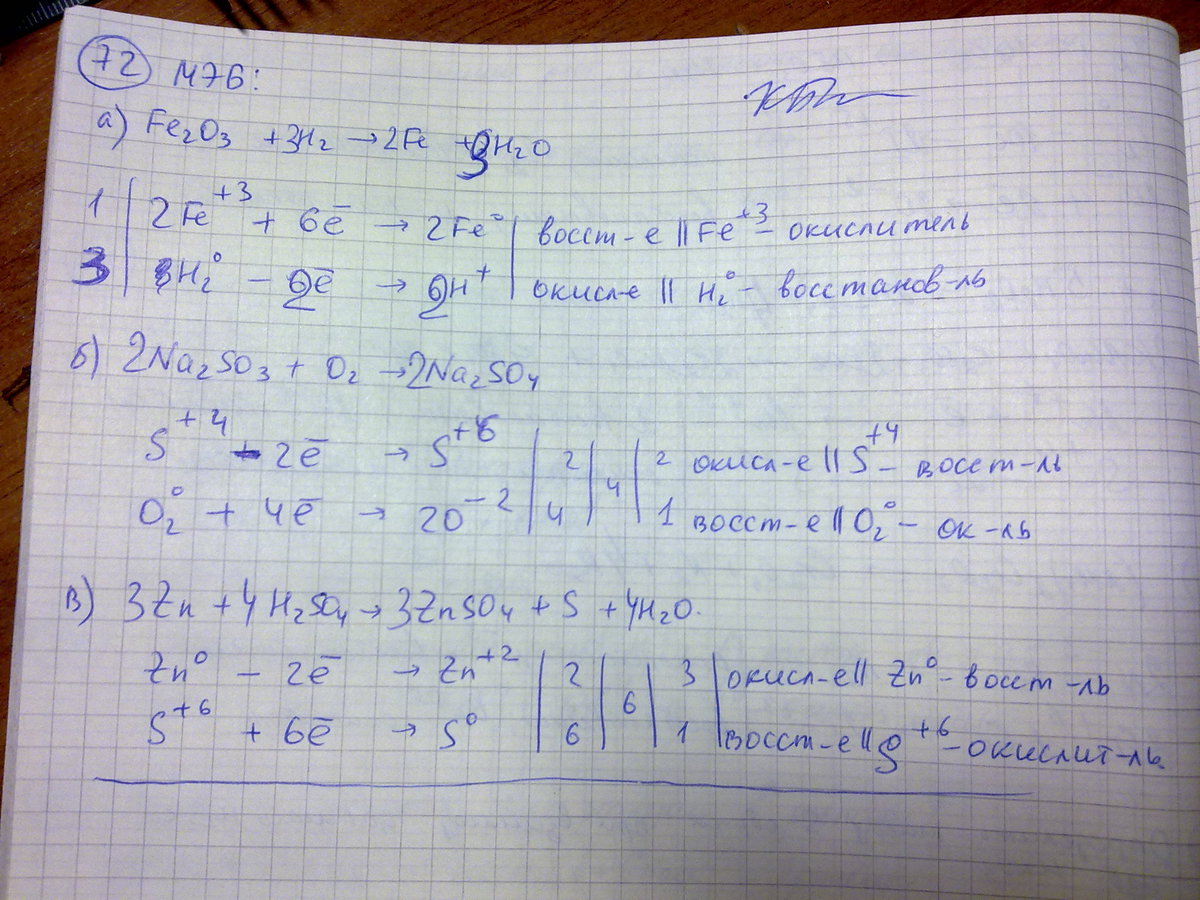 72 М76:
а) Fe₂O₃ + 3H₂ → 2Fe + 3H₂O
1 | 2Fe⁺³ + 6ē → 2Fe⁰ | восст-е || Fe⁺³ – окислитель
3 | H₂⁰ – 2ē → 2H⁺ | окисл-е || H₂⁰ – восстанов-ль
б) 2Na₂SO₃ + O₂ → 2Na₂SO₄
S⁺⁴ – 2ē → S⁺⁶ | 2 | | 2 окисл-е || S⁺⁴ – восст-ль
O₂⁰ + 4ē → 2O⁻² | 4 | 4 | 1 восст-е || O₂⁰ – ок-ль
в) 3Zn + 4H₂SO₄ → 3ZnSO₄ + S + 4H₂O.
Zn⁰ – 2ē → Zn⁺² | 2 | | 3 | окисл-е || Zn⁰ – восст-ль
S⁺⁶ + 6ē → S⁰ | 6 | 6 | 1 | восст-е || S⁺⁶ – окислит-ль